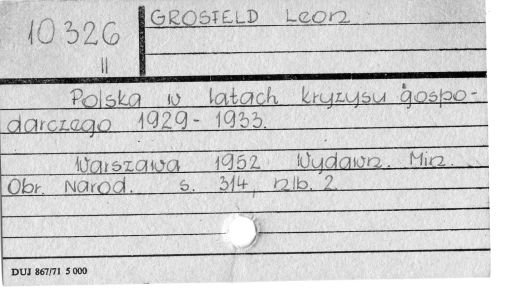 10326
II
GROSFELD Leon
Polska w latach kryzysu gospo-
darczego 1929-1933.
Warszawa 1952 Wydawn. Min.
Obr. Narod. s. 314, nlb. 2.
DUJ 867/71 5 000